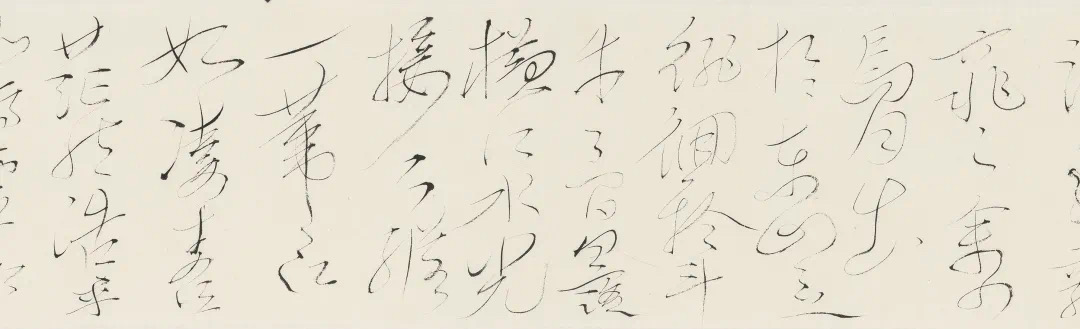 窕之章少
焉月出
於東山之上
徘徊於斗
牛之間白露
橫江水光
接天縱
一葦之所
如凌萬頃之
茫然浩〻乎